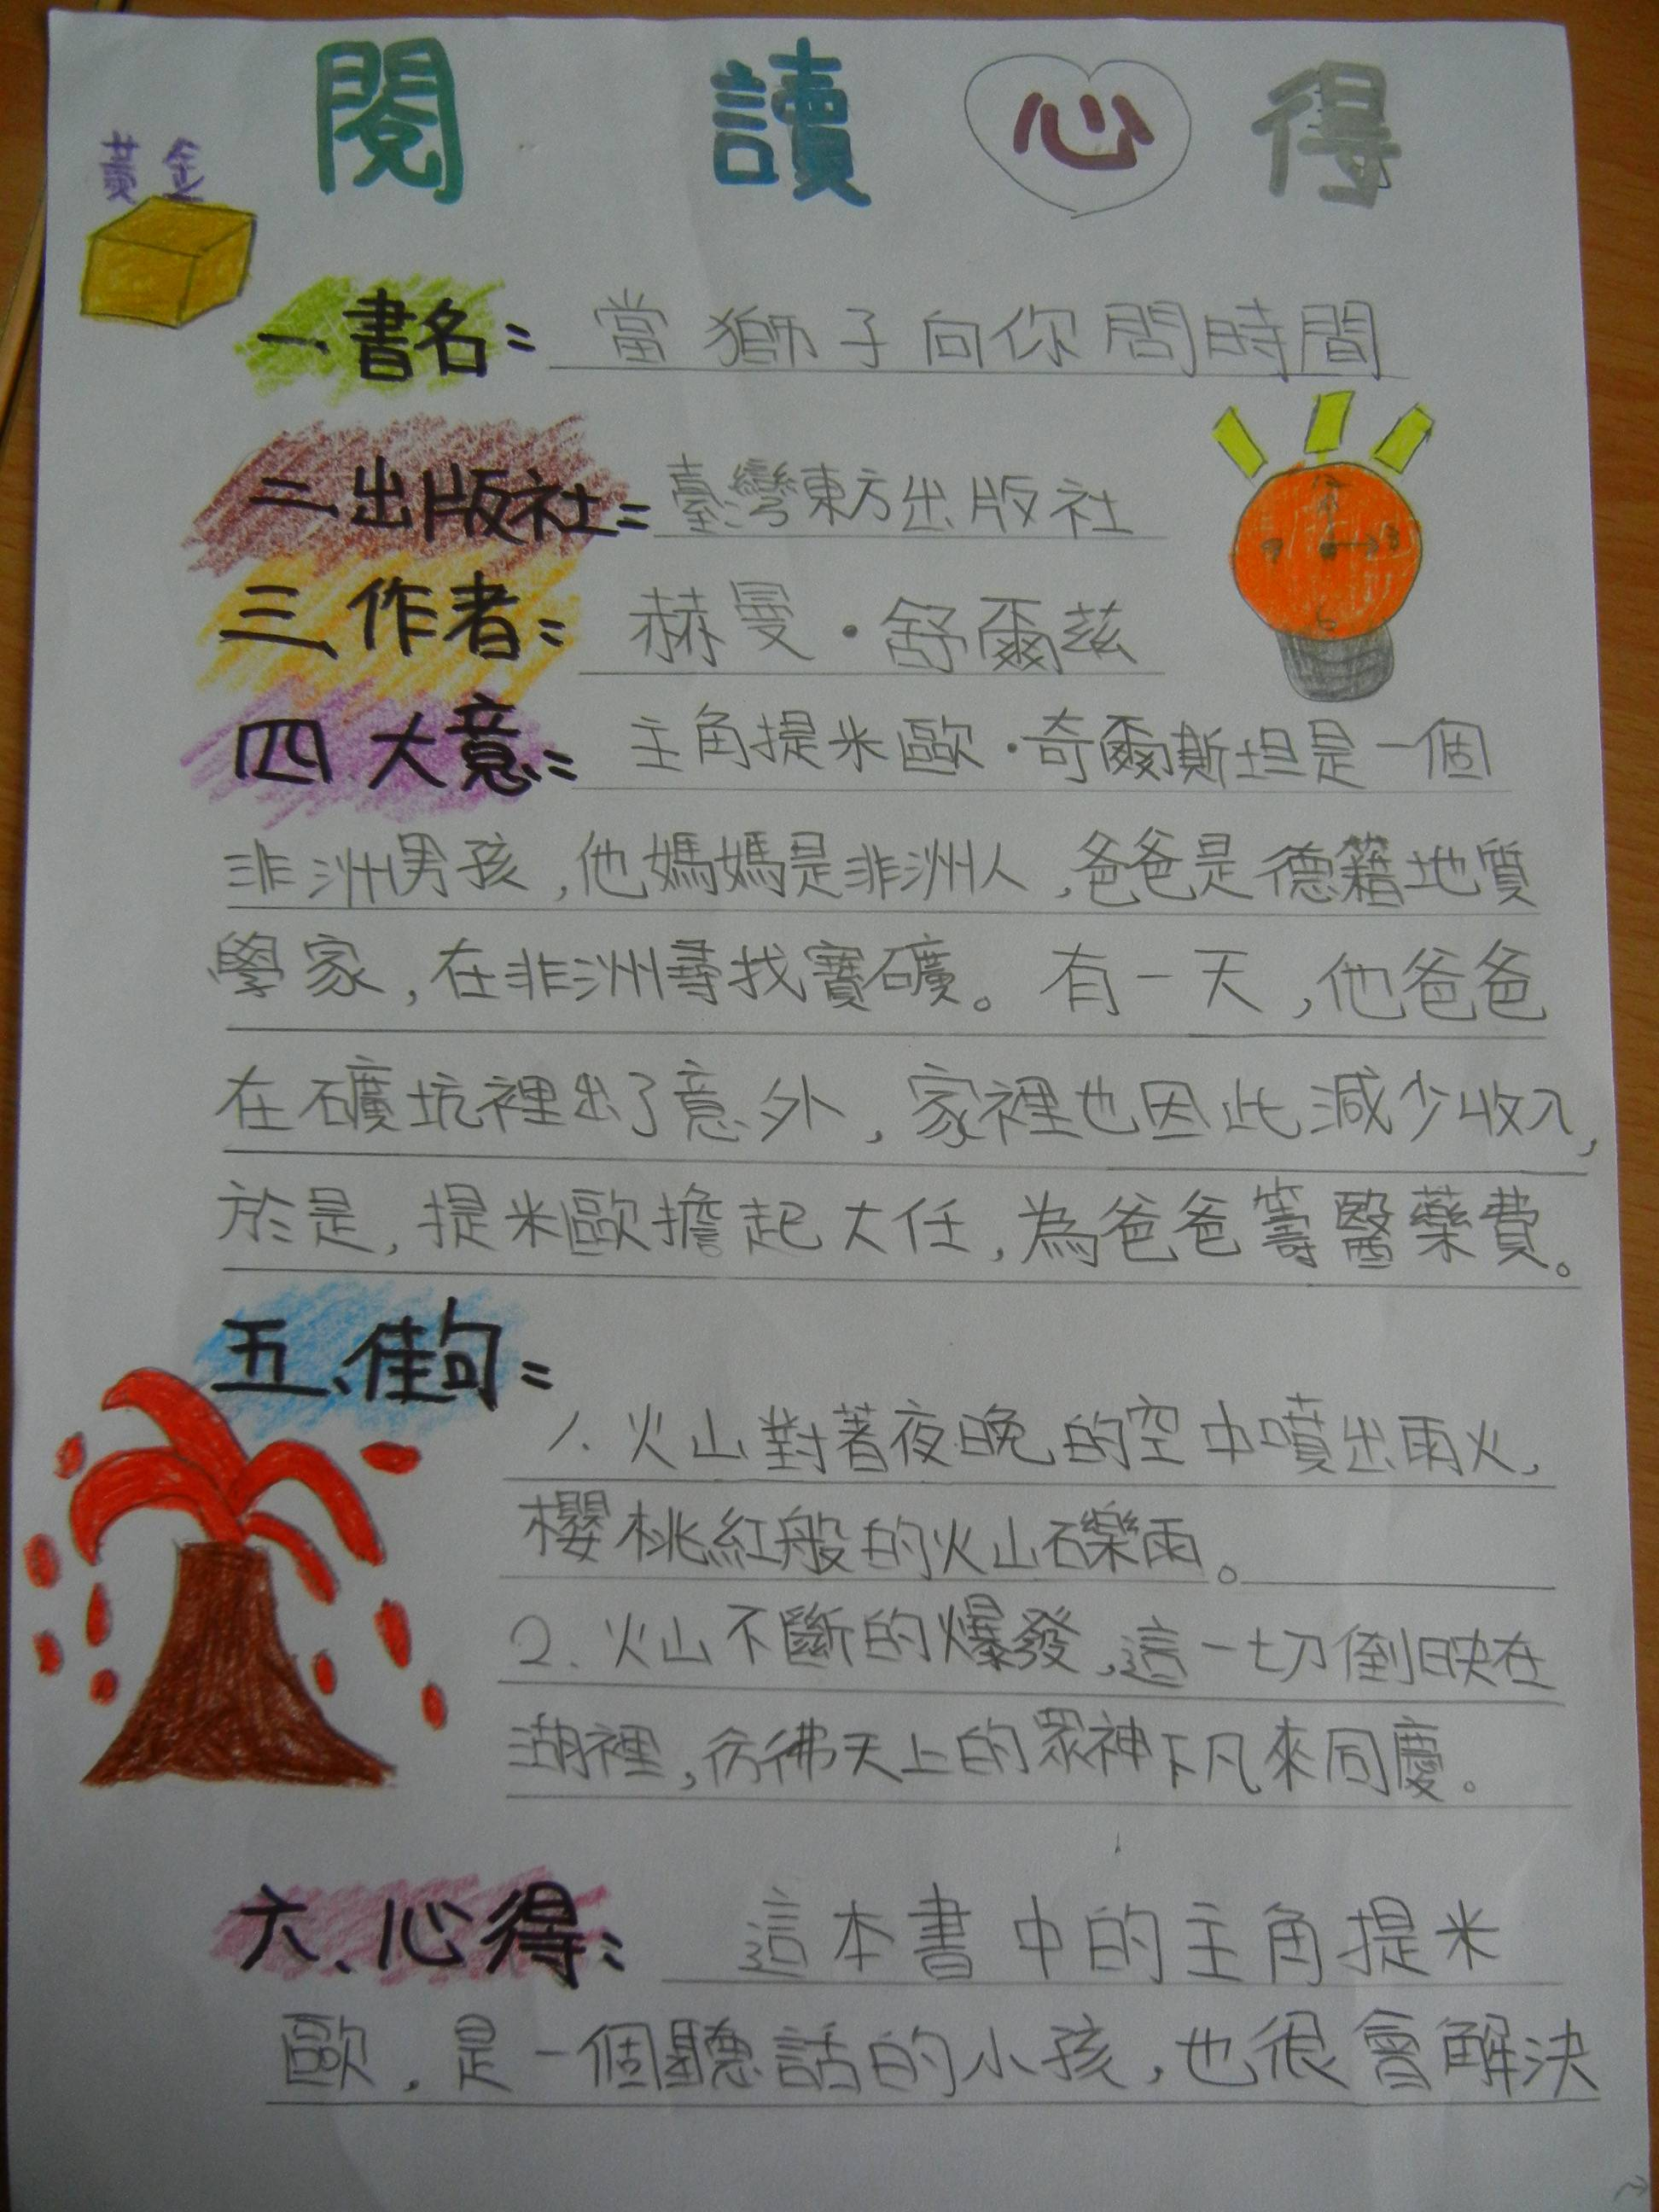 閱讀心得
黃金
一、書名：當獅子向你問時間
二、出版社：臺灣東方出版社
三、作者：赫曼·舒爾茲
四、大意：主角提米歐·奇爾斯坦是一個
非洲男孩，他媽媽是非洲人，爸爸是德籍地質
學家，在非洲尋找寶礦。有一天，他爸爸
在礦坑裡出了意外，家裡也因此減少收入，
於是，提米歐擔起大任，為爸爸籌醫藥費。
五、佳句：
1.火山對著夜晚的空中噴出雨火，
櫻桃紅般的火山礫雨。
2.火山不斷的爆發，這一切倒映在
湖裡，彷彿天上的眾神下凡來同慶。
六、心得：這本書中的主角提米
歐，是一個聽話的小孩，也很會解決